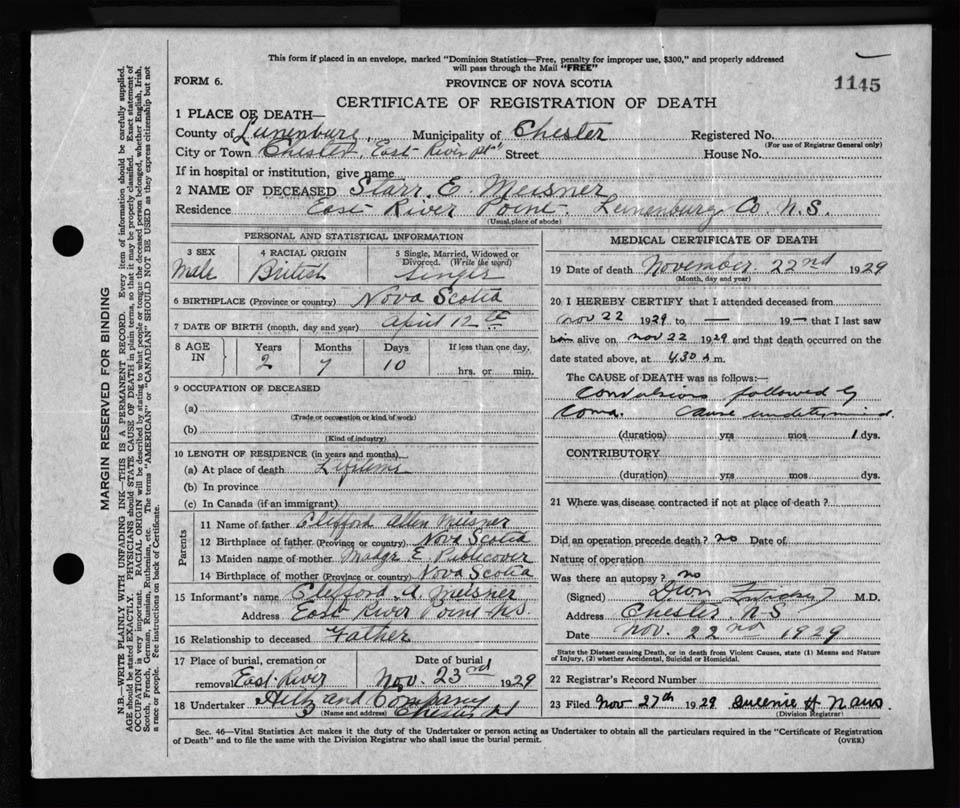 This form if placed in an envelope, marked "Dominion Statistics—Free, penalty for improper use, $300," and properly addressed
will pass through the Mail "FREE"
FORM 6.
PROVINCE OF NOVA SCOTIA
1145
CERTIFICATE OF REGISTRATION OF DEATH
1 PLACE OF DEATH—
County of Lunenburg, Municipality of Chester Registered No.
(For use of Registrar General only)
City or Town Chester, East River Pt" Street House No.
If in hospital or institution, give name
2 NAME OF DECEASED Starr E. Meisner
Residence East River Point. Lunenburg Co. N.S.
(Usual place of abode)
PERSONAL AND STATISTICAL INFORMATION
3 SEX
Male
4 RACIAL ORIGIN
British
5 Single, Married, Widowed or
Divorced. (Write the word)
6 BIRTHPLACE (Province or country) Nova Scotia
7 DATE OF BIRTH (month, day and year) April 12
8 AGE IN
Years Months Days If less than one day,
2 7 10
hrs. or min.
9 OCCUPATION OF DECEASED
(a)
(Trade or occupation or kind of work)
(b)
(Kind of industry)
10 LENGTH OF RESIDENCE (in years and months)
(a) At place of death Lifetime
(b) In province
(c) In Canada (if an immigrant)
Parents
11 Name of father Clifford Allen Meisner
12 Birthplace of father (Province or country) Nova Scotia
13 Maiden name of mother Madge E Publicover
14 Birthplace of mother (Province or country) Nova Scotia
15 Informant's name Clifford A Meisner
Address East River Point N.S.
16 Relationship to deceased Father
17 Place of burial, cremation or
removal East River
Date of burial
Nov. 23rd 1929
18 Undertaker and Company
(Name and address) Chester
MEDICAL CERTIFICATE OF DEATH
19 Date of death November 22nd 1929
(Month, day and year)
20 I HEREBY CERTIFY that I attended deceased from
Nov 22 1929 to — 19— that I last saw
him alive on Nov 22 1929 and that death occurred on the
date stated above, at 4.30 A m.
The CAUSE OF DEATH was as follows:—
Convulsions followed by
Coma. Cause undetermined.
(duration) yrs mos 1 dys.
CONTRIBUTORY
(duration) yrs mos dys.
21 Where was disease contracted if not at place of death?
Did an operation precede death? no Date of
Nature of operation
Was there an autopsy? no
(Signed) M.D.
Address Chester N.S
Date Nov. 22nd 1929
State the Disease causing Death, or in death from Violent Causes, state (1) Means and Nature
of Injury, (2) whether Accidental, Suicidal or Homicidal.
22 Registrar's Record Number
23 Filed Nov 27th 1929 H Naus
(Division Registrar)
Sec. 46—Vital Statistics Act makes it the duty of the Undertaker or person acting as Undertaker to obtain all the particulars required in the "Certificate of Registration
of Death" and to file the same with the Division Registrar who shall issue the burial permit.
(OVER)
MARGIN RESERVED FOR BINDING
N.B.—WRITE PLAINLY WITH UNFADING INK—THIS IS A PERMANENT RECORD. Every item of information should be carefully supplied.
AGE should be stated EXACTLY. PHYSICIANS should STATE CAUSE OF DEATH in plain terms, so that it may be properly classified. Exact statement of
OCCUPATION is very important. RACIAL ORIGIN will be described by stating to what people or tongue the deceased person belonged, whether English, Irish,
Scotch, French, German, Russian, Ruthenian, etc. The terms "AMERICAN" or "CANADIAN" SHOULD NOT BE USED as they express citizenship but not
a race or people. Fee instructions on back of Certificate.